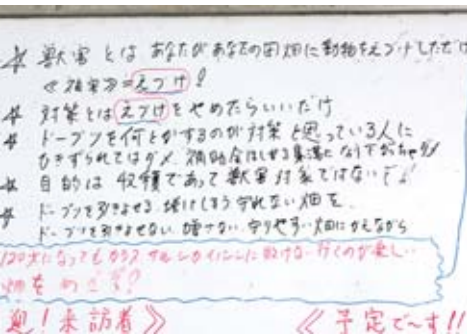 獣害とは あなたがあなたの田畑に動物をえづけしただけ
≪被害≫=えづけ!
対策とはえづけをやめたらいいだけ
ドーブツを何とかするのが対策と思っている人に
ひきずられてはダメ 補助金 集落に なり下がっちゃう
目的は 収穫であって獣害対策ではない
ドーブツを引きよせる 増けてしまう 守れない 畑を
ドーブツを引きよせない 増やさない 守りやすい畑にかえながら
120才になってもカラス サル シカ イノシシに負けない 行くのが楽し
畑をめざす?
迎!来訪者≫
≪予定で~す!!